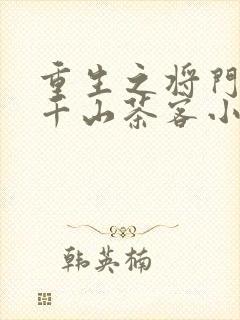 重生之将门
千山茶客小
韩英楠